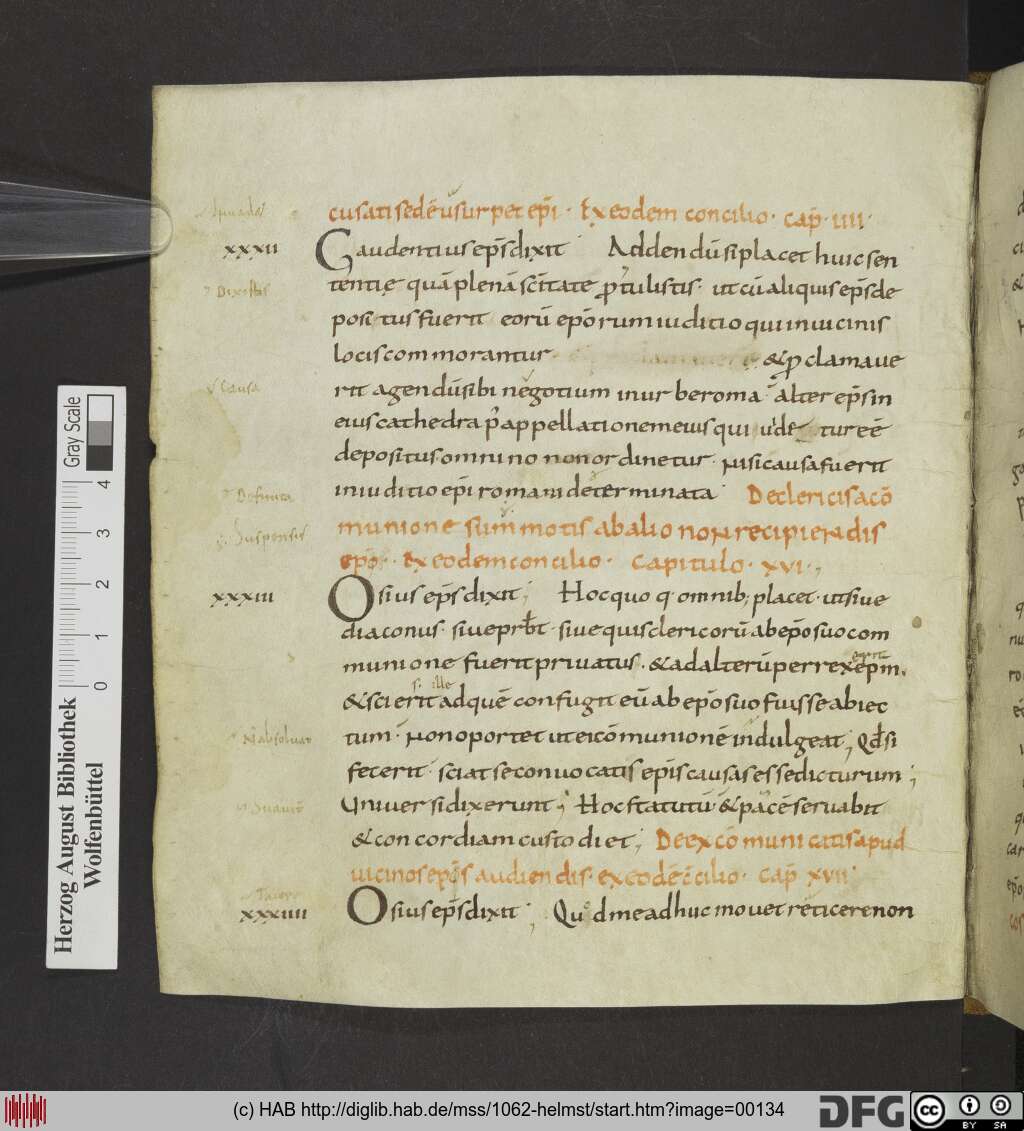 cusati sedē usurpet epi. Ex eodem concilio. cap. IIII.
XXXII
Gaudentius eps dixit Addendū si placet huic sen
tentię quā plenā scitate ptulistis. ut cū aliquis eps de
Dixistis
positus fuerit eorū eporum iuditio qui in uicinis
locis commorantur & pclamaue
Causa
rit agendū sibi negotium in urbe roma alter eps in
eius cathedra p appellationem eius qui uidetur eē
depositus omnino non ordinetur. Nisi causa fuerit
Definita
in iuditio epi romani determinata De clericis acō
Suspensis
munione summotis ab alio non recipiendis
epo. Ex eodem concilio. Capitulo. XVI.
XXXIII
Osius eps dixit; Hoc quoq. omnib; placet. ut siue
diaconus. siue prbt. siue quis clericorū ab epo suo com
munione fuerit priuatus. & ad alterū perrexerit epm.
si ille
& scierit ad quē confugit eū ab epo suo fuisse abiec
tum. Non oportet ut ei cōmunionē indulgeat; Qd si
fecerit. sciat se conuocatis epis causas esse dicturum;
Uniuersi dixerunt; Hoc statutū & pacē seruabit
& concordiam custodiet; De excōmunicatis apud
uicinos epos audiendis. ex eodē cōcilio. cap XVII
XXXIIII
Osius eps dixit; Quod me adhuc mouet reticere non
Gray Scale
0 1 2 3 4
Herzog August Bibliothek
Wolfenbüttel
(c) HAB http://diglib.hab.de/mss/1062-helmst/start.htm?image=00134
DFG
cc BY SA